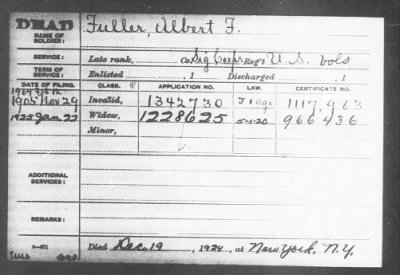 DEAD
NAME OF SOLDIER: Fuller, Albert F.
SERVICE: Late rank, Co. Sig Corps Reg't U.S. vols
TERM OF SERVICE: Enlisted , 1 Discharged , 1
DATE OF FILING. CLASS. APPLICATION NO. LAW. CERTIFICATE NO.
1905 Nov 29 Invalid, 1342730 1117.963
1925 Jan 22 Widow, 1228625 5-1-20 966436
Minor,
ADDITIONAL SERVICES:
REMARKS:
Died Dec. 19, 1924, at New York, N.Y.